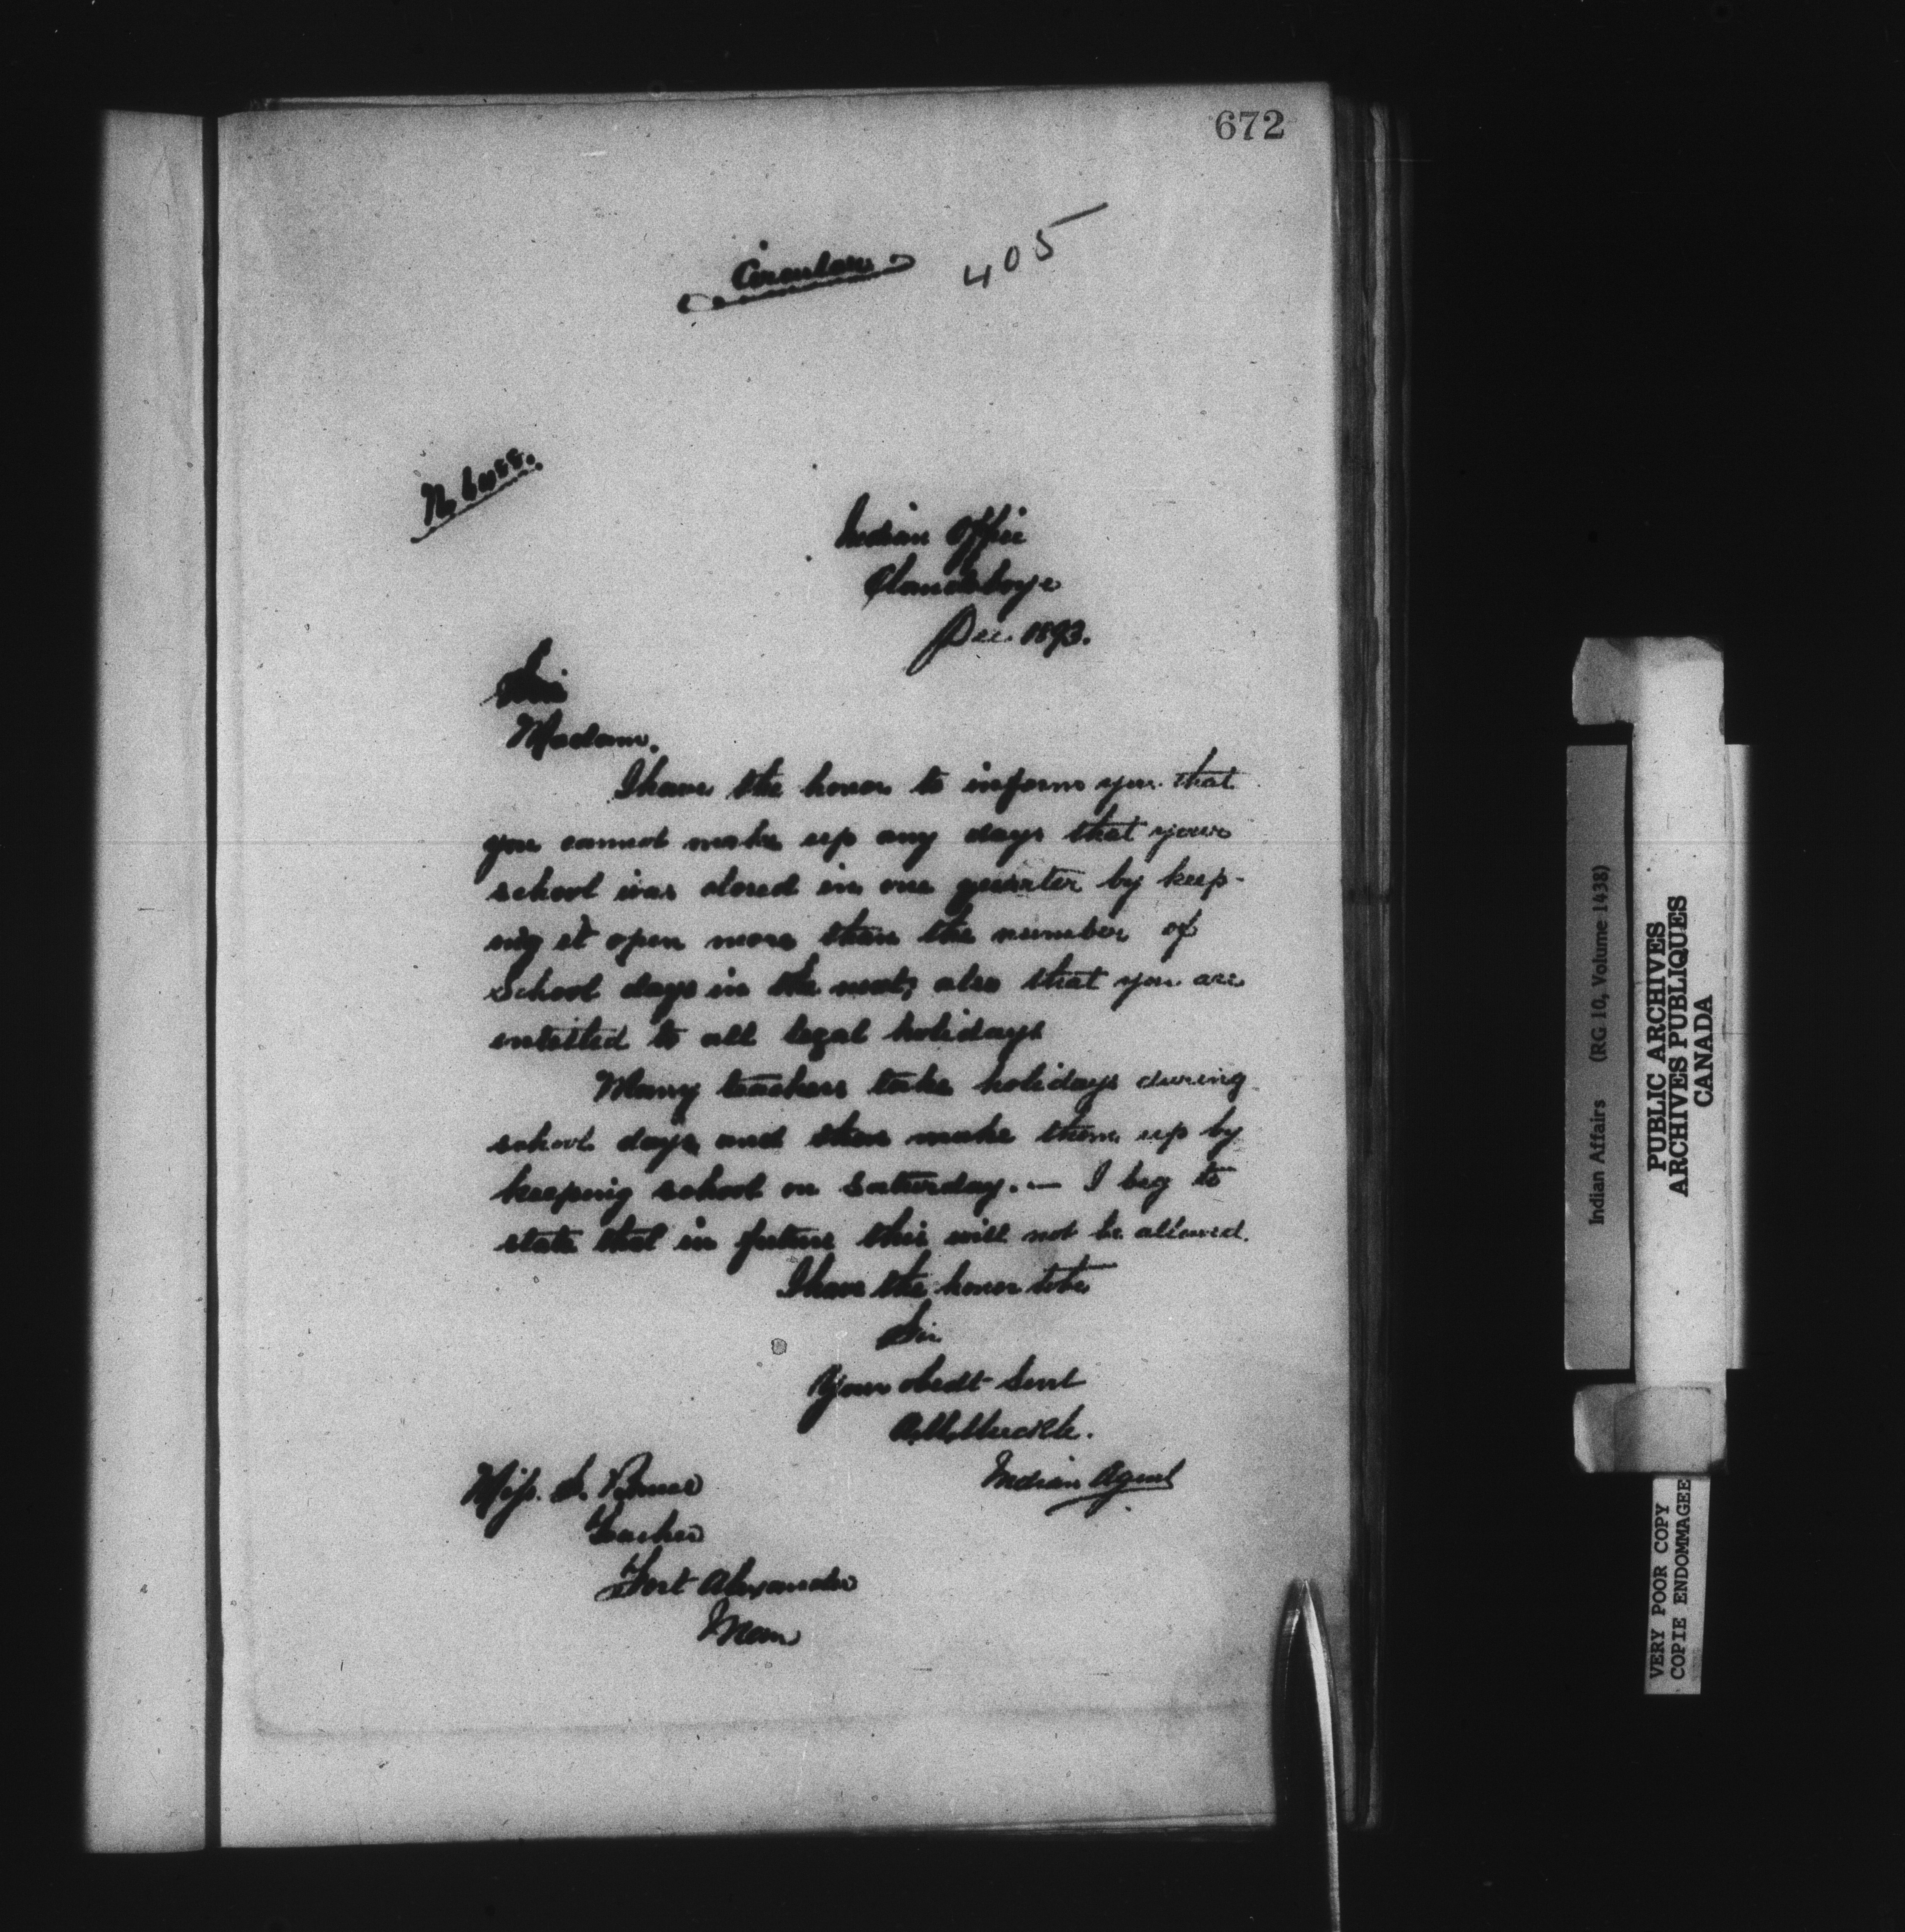 672
Circular
405
Indian Office
Clandeboye
Dec. 1893.
Sir
Madam.
I have the honor to inform you that
you cannot make up any days that your
school was closed in one quarter by keep-
ing it open more than the number of
School days in the next, also that you are
intitled to all legal holidays
Many teachers take holidays during
school days and then make them up by
keeping school on Saturday. — I beg to
state that in future this will not be allowed.
I have the honor to be
Sir
Your obedt Servt
Indian Agent
Miss. S.
Teacher
Fort Alexander
Man
Indian Affairs (RG 10, Volume 1438)
PUBLIC ARCHIVES
ARCHIVES PUBLIQUES
CANADA
VERY POOR COPY
COPIE ENDOMMAGEE